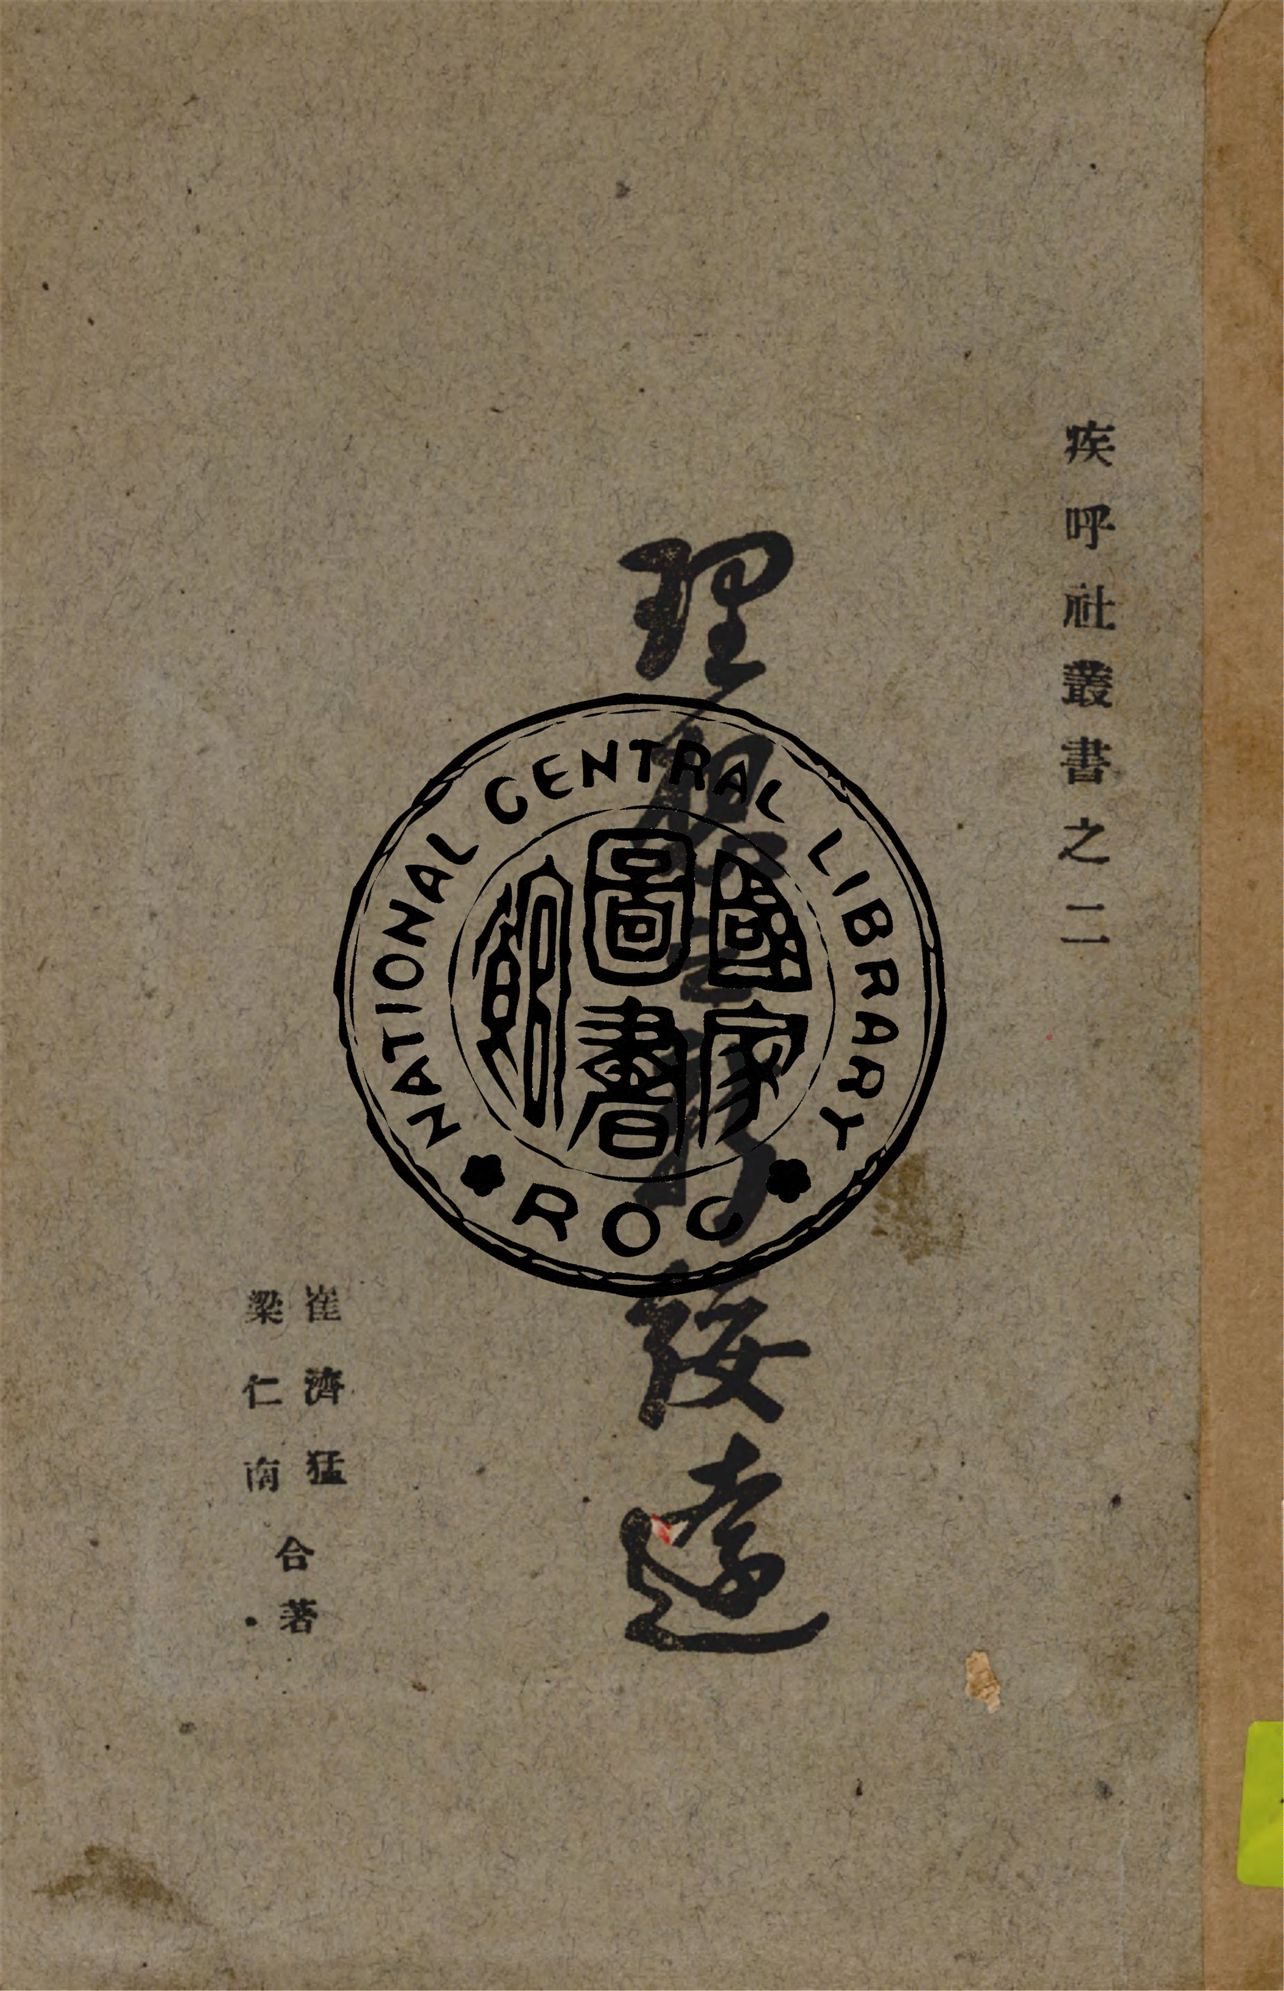 疾呼社叢書之二
理
綏遠
崔濟猛
梁仁南
合著
NATIONAL CENTRAL LIBRARY
國家
圖書
館
ROC